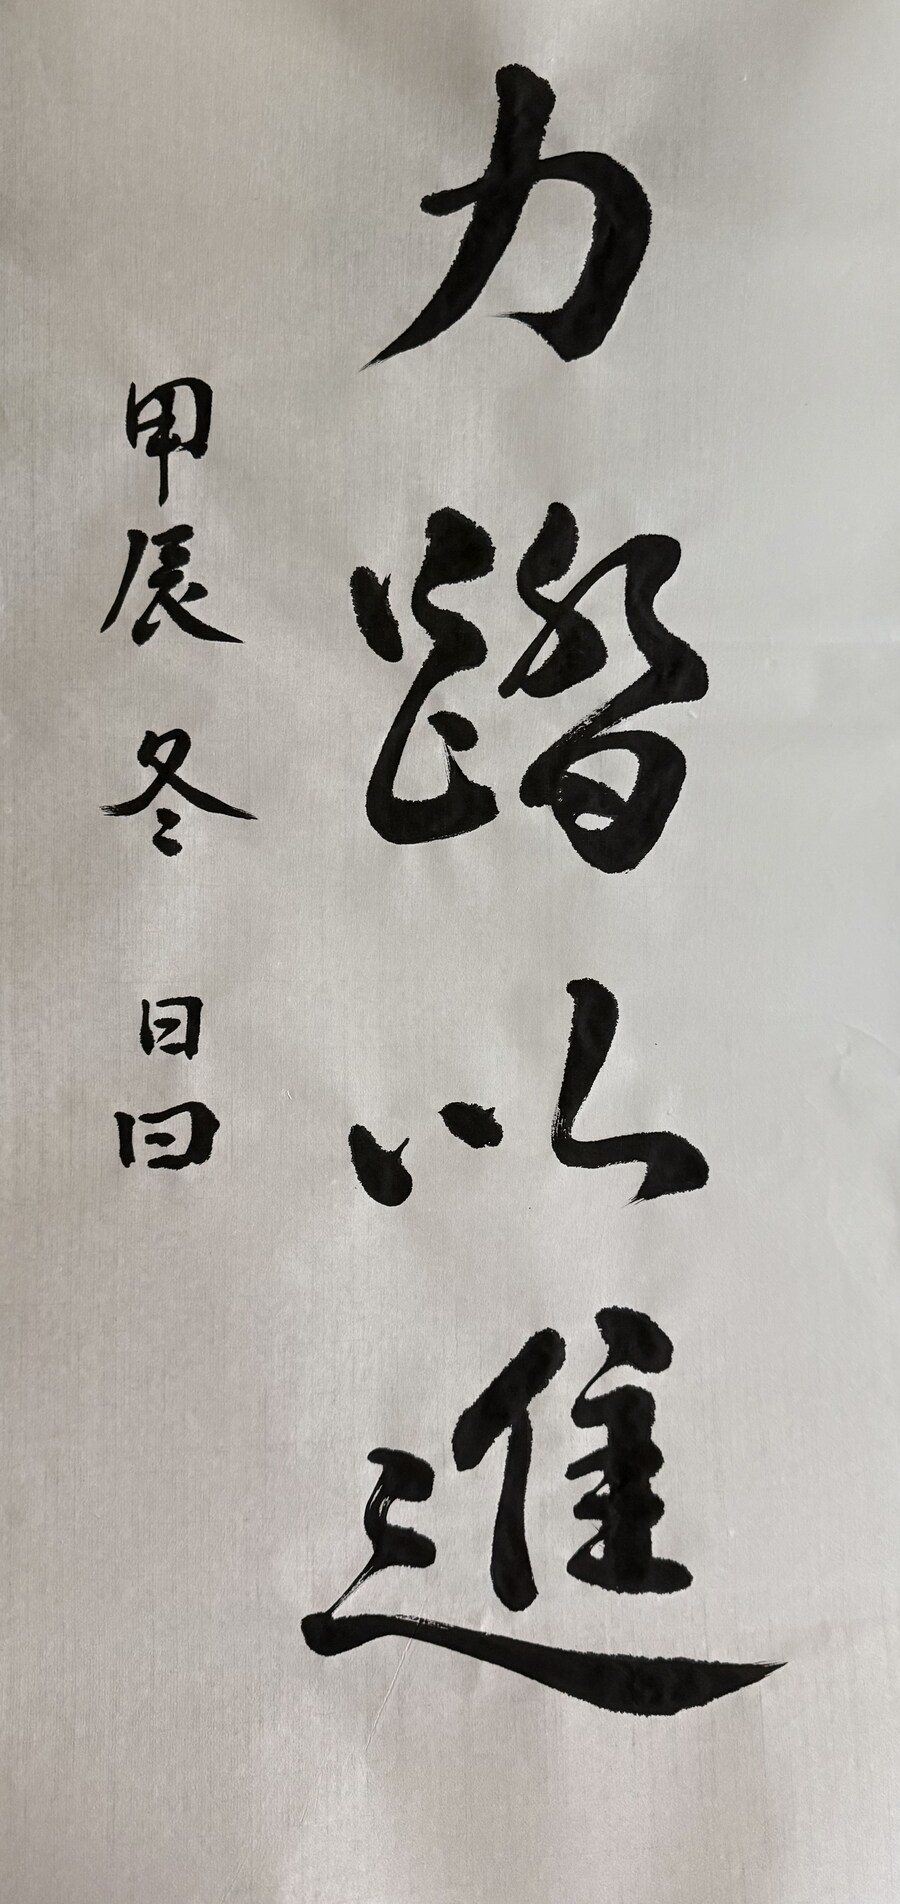 力踏以進
甲辰冬日曰